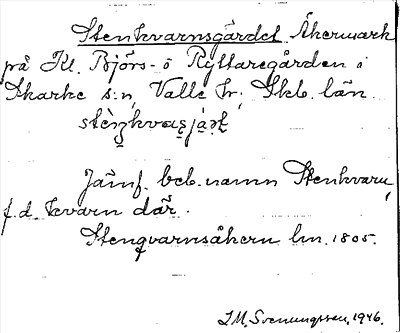 Stenkvarnsgärdet Åkermark
på Kl. Björs- o Ryttaregården i
Skarke s:n, Valle hr, Skb. län.
Jämf. beb.namn Stenkvarn,
f.d. kvarn där.
Stenqvarnsåkern lm. 1805.
I.M. Svenungsson, 1946.